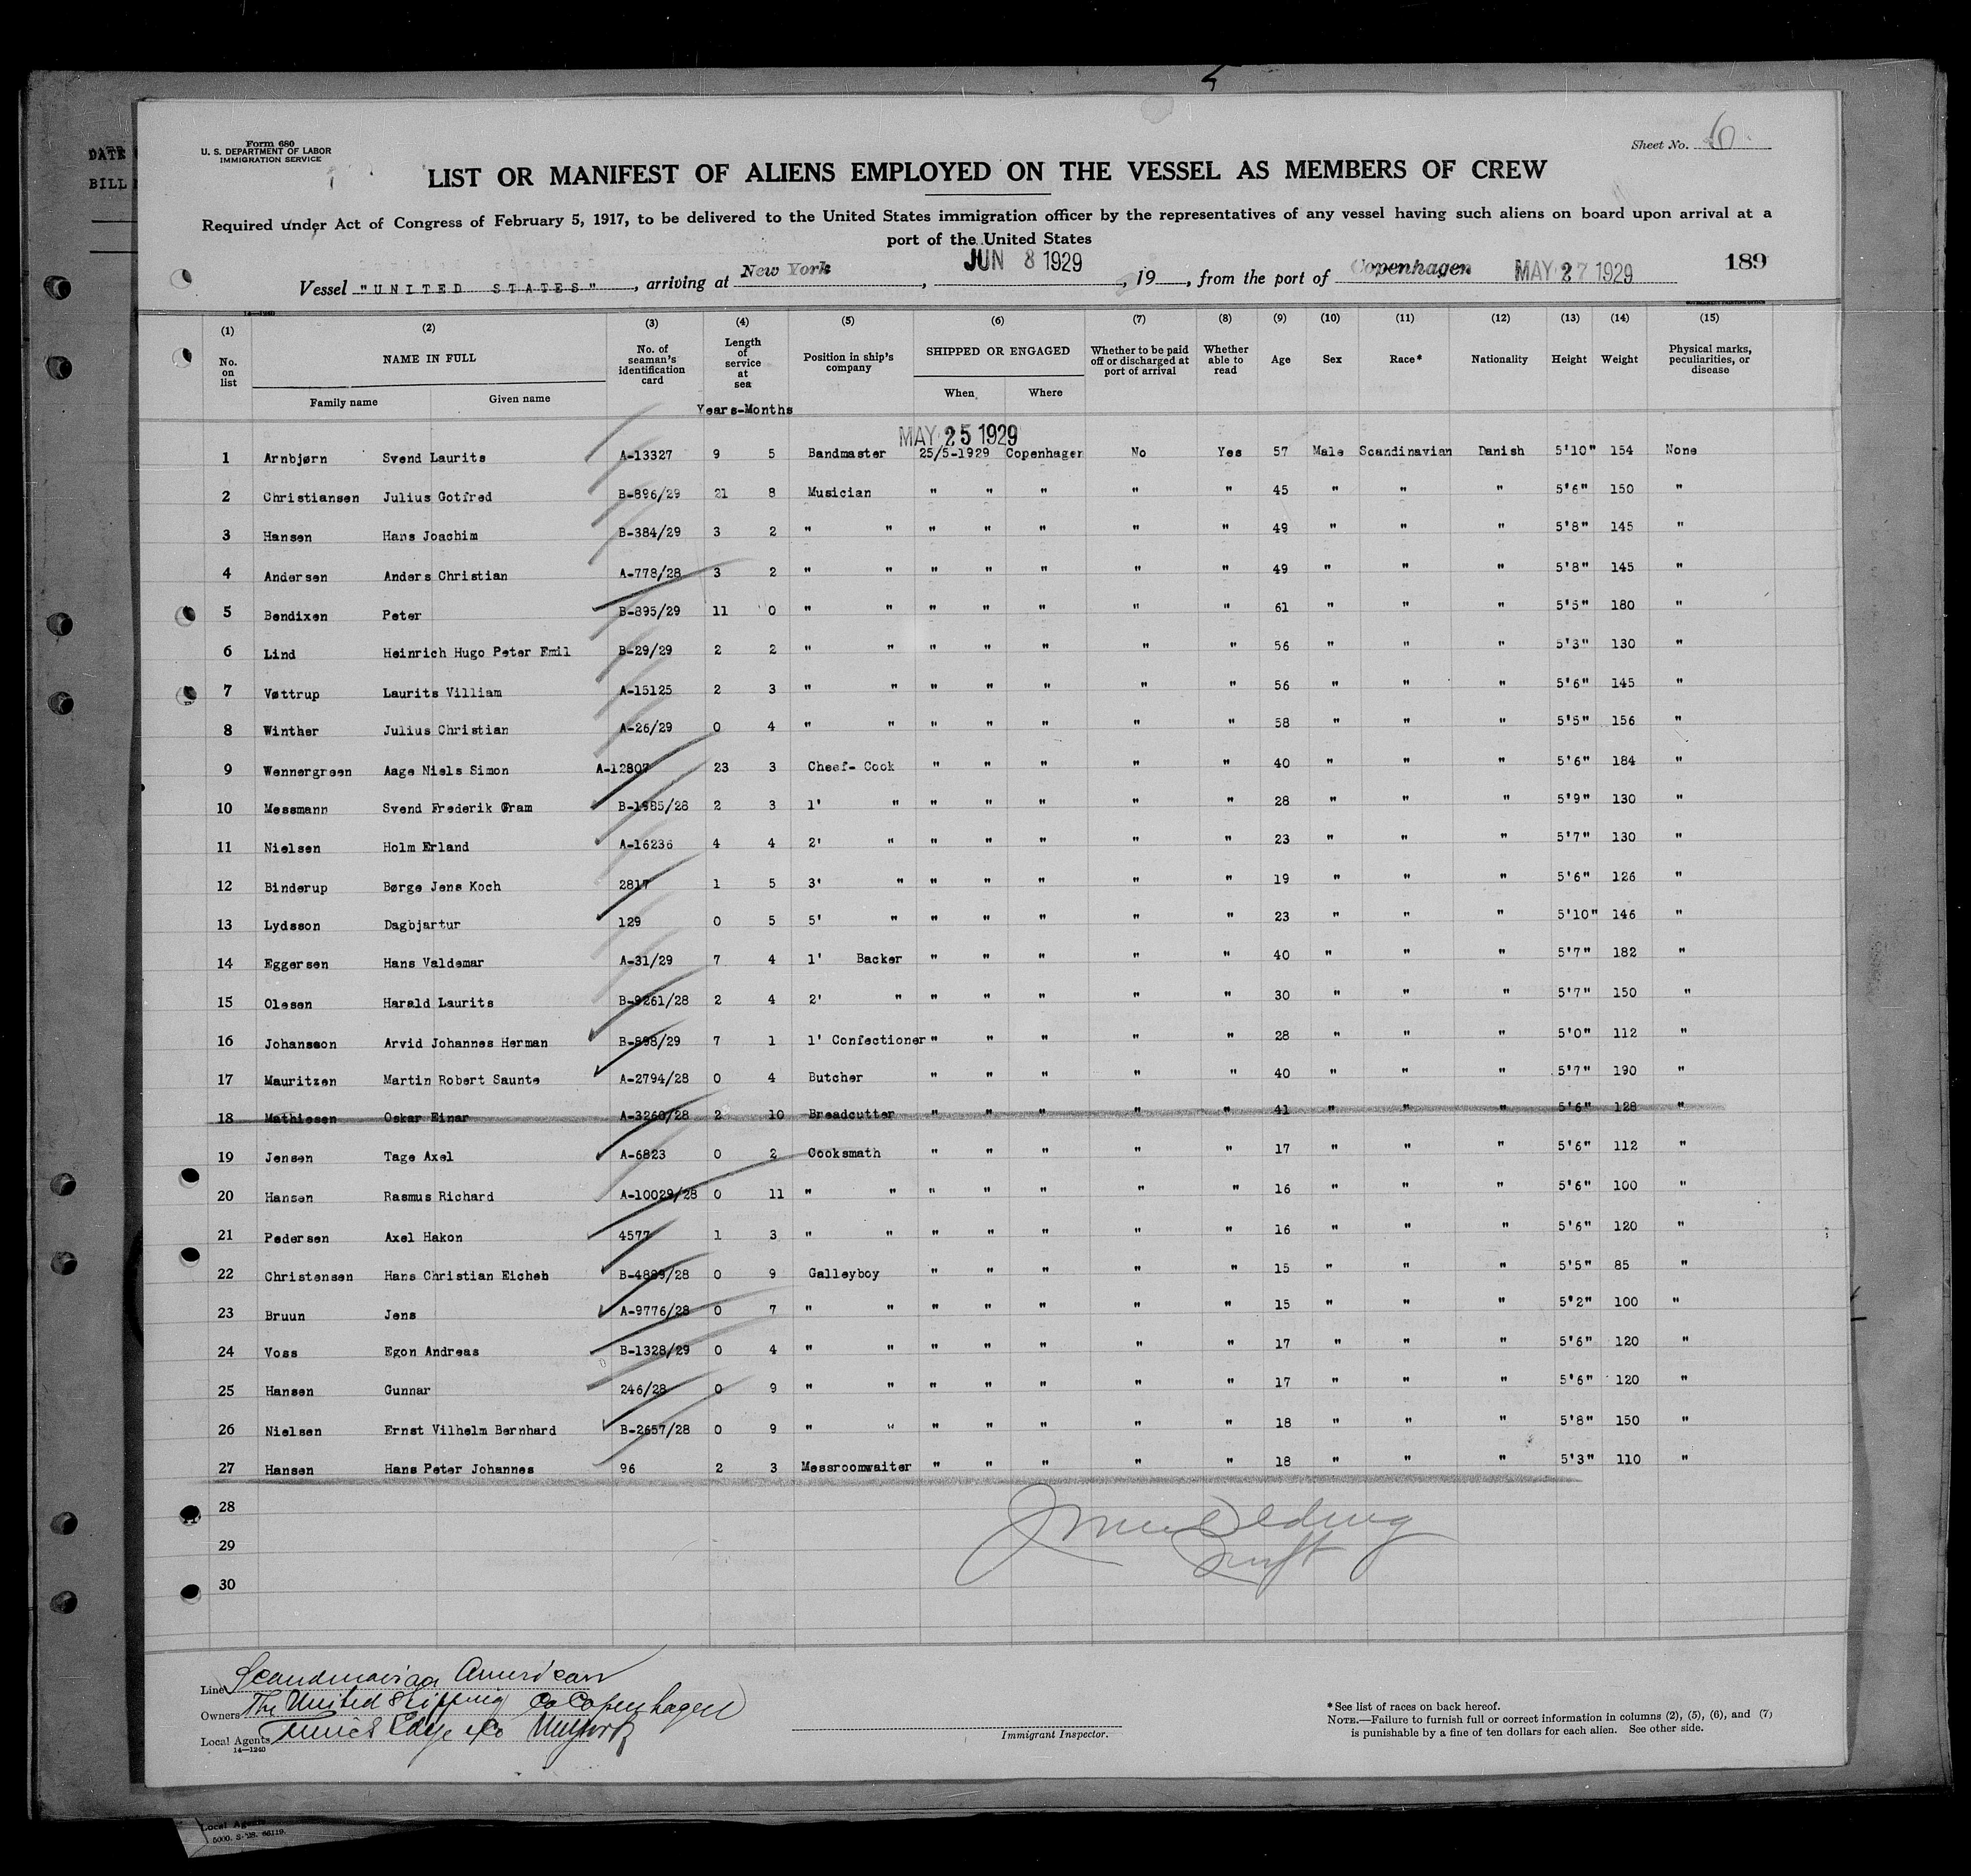 DATE
BILL
Form 680
U. S. DEPARTMENT OF LABOR
IMMIGRATION SERVICE
Sheet No. 6
LIST OR MANIFEST OF ALIENS EMPLOYED ON THE VESSEL AS MEMBERS OF CREW
Required under Act of Congress of February 5, 1917, to be delivered to the United States immigration officer by the representatives of any vessel having such aliens on board upon arrival at a
port of the United States
Vessel "UNITED STATES", arriving at New York, JUN 8 1929, 19 , from the port of Copenhagen MAY 27 1929
189
14—1240
(1) (2) (3) (4) (5) (6) (7) (8) (9) (10) (11) (12) (13) (14) (15)
No. on list
NAME IN FULL
Family name Given name
No. of seaman's identification card
Length of service at sea
Years-Months
Position in ship's company
SHIPPED OR ENGAGED
When Where
Whether to be paid off or discharged at port of arrival
Whether able to read
Age Sex Race* Nationality Height Weight
Physical marks, peculiarities, or disease
MAY 25 1929
1 Arnbjørn Svend Laurits A-13327 9 5 Bandmaster 25/5-1929 Copenhagen No Yes 57 Male Scandinavian Danish 5'10" 154 None
2 Christiansen Julius Gotfred B-896/29 21 8 Musician " " " " " 45 " " " 5'6" 150 "
3 Hansen Hans Joachim B-384/29 3 2 " " " " " " " 49 " " " 5'8" 145 "
4 Andersen Anders Christian A-778/28 3 2 " " " " " " " 49 " " " 5'8" 145 "
5 Bendixen Peter B-895/29 11 0 " " " " " " " 61 " " " 5'5" 180 "
6 Lind Heinrich Hugo Peter Emil B-29/29 2 2 " " " " " " " 56 " " " 5'3" 130 "
7 Vøttrup Laurits Villiam A-15125 2 3 " " " " " " " 56 " " " 5'6" 145 "
8 Winther Julius Christian A-26/29 0 4 " " " " " " " 58 " " " 5'5" 156 "
9 Wennergreen Aage Niels Simon A-12807 23 3 Cheef- Cook " " " " " 40 " " " 5'6" 184 "
10 Messmann Svend Frederik Gram B-1985/28 2 3 1' " " " " " " 28 " " " 5'9" 130 "
11 Nielsen Holm Erland A-16236 4 4 2' " " " " " " 23 " " " 5'7" 130 "
12 Binderup Børge Jens Koch 2817 1 5 3' " " " " " " 19 " " " 5'6" 126 "
13 Lydsson Dagbjartur 129 0 5 5' " " " " " " 23 " " " 5'10" 146 "
14 Eggersen Hans Valdemar A-31/29 7 4 1' Backer " " " " " 40 " " " 5'7" 182 "
15 Olesen Harald Laurits B-9261/28 2 4 2' " " " " " " 30 " " " 5'7" 150 "
16 Johansson Arvid Johannes Herman B-898/29 7 1 1' Confectioner " " " " " 28 " " " 5'0" 112 "
17 Mauritzen Martin Robert Saunte A-2794/28 0 4 Butcher " " " " " 40 " " " 5'7" 190 "
18 Mathiesen Oskar Einar A-3260/28 2 10 Breadcutter " " " " " 41 " " " 5'6" 128 "
19 Jensen Tage Axel A-6823 0 2 Cooksmath " " " " " 17 " " " 5'6" 112 "
20 Hansen Rasmus Richard A-10029/28 0 11 " " " " " " " 16 " " " 5'6" 100 "
21 Pedersen Axel Hakon 4577 1 3 " " " " " " " 16 " " " 5'6" 120 "
22 Christensen Hans Christian Eicheb B-4889/28 0 9 Galleyboy " " " " " 15 " " " 5'5" 85 "
23 Bruun Jens A-9776/28 0 7 " " " " " " " 15 " " " 5'2" 100 "
24 Voss Egon Andreas B-1328/29 0 4 " " " " " " " 17 " " " 5'6" 120 "
25 Hansen Gunnar 246/28 0 9 " " " " " " " 17 " " " 5'6" 120 "
26 Nielsen Ernst Vilhelm Bernhard B-2657/28 0 9 " " " " " " " 18 " " " 5'8" 150 "
27 Hansen Hans Peter Johannes 96 2 3 Messroomwaiter " " " " " 18 " " " 5'3" 110 "
28
29
30
Line Scandinavian American
Owners The United Shipping Co Copenhagen
Local Agents
14—1240
Immigrant Inspector.
* See list of races on back hereof.
NOTE.—Failure to furnish full or correct information in columns (2), (5), (6), and (7)
is punishable by a fine of ten dollars for each alien. See other side.
Local Agents
5000. 3-'28. 66119.